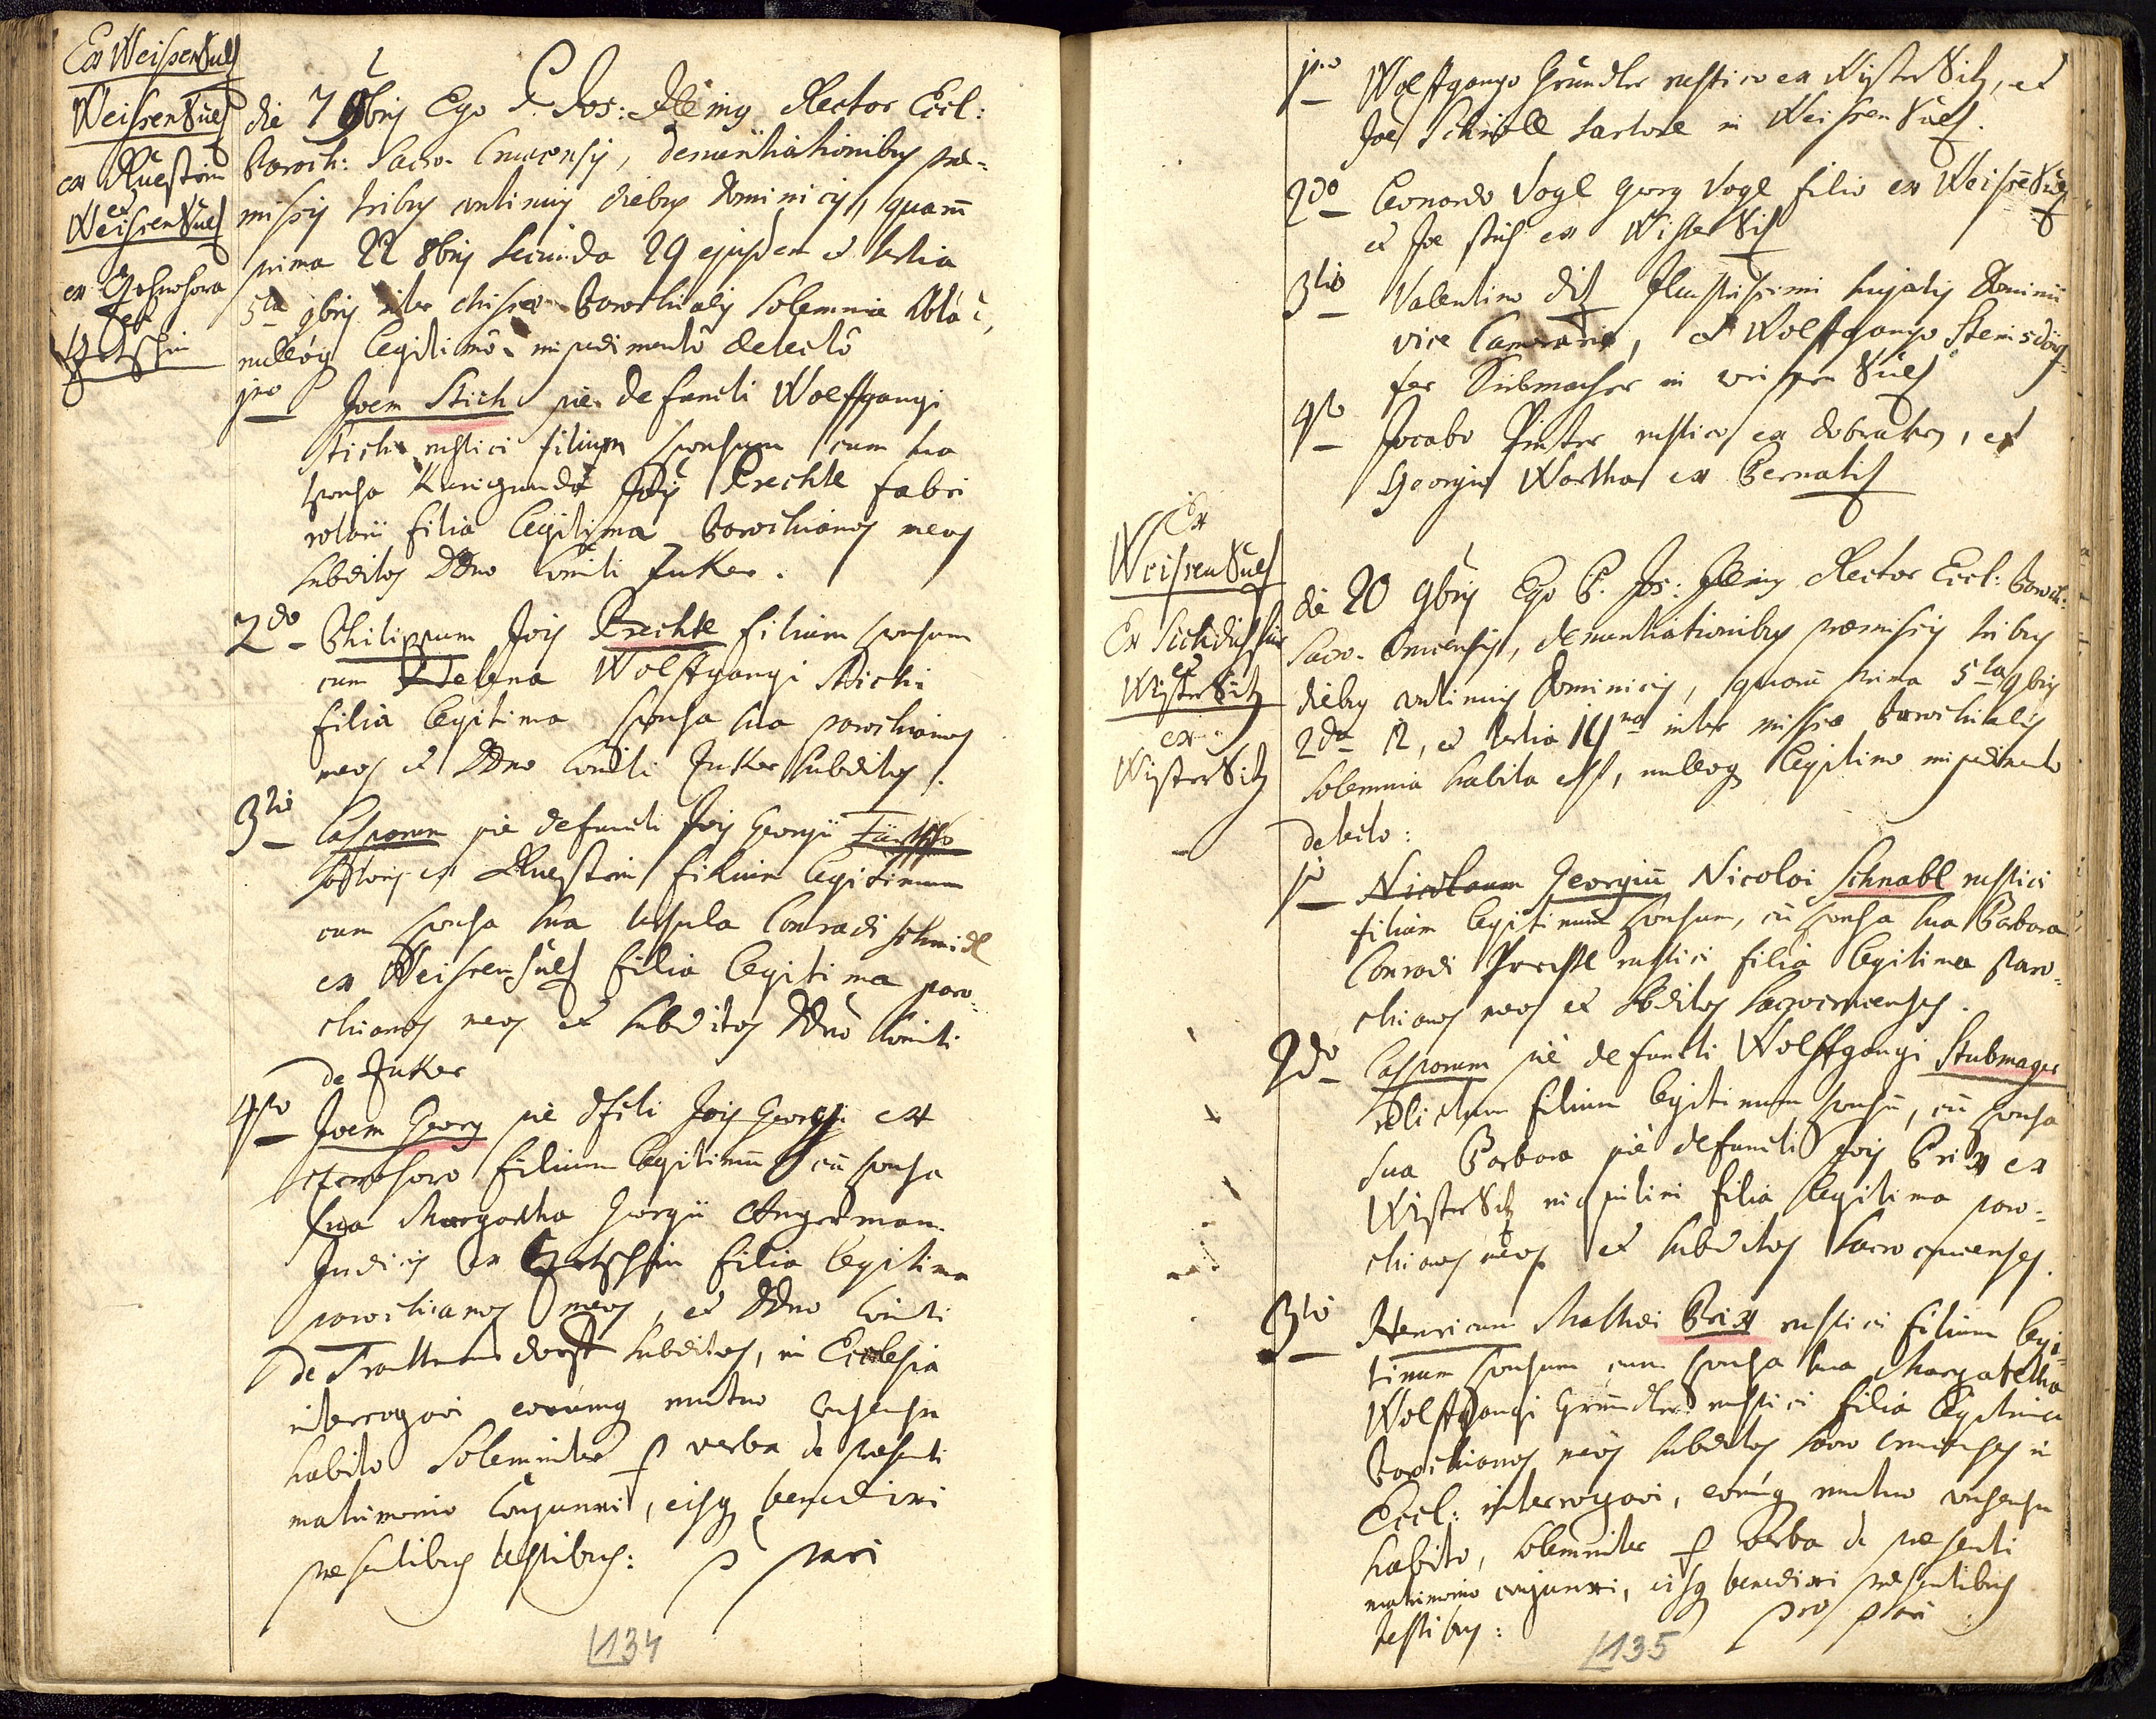 Ex Weissensulz
Weissensulz
ex
et
Weissensulz
ex
et
die 7 9bris Ego P. Jos: Rector Eccl:
Paroch: Sacro Crucensis, denuntiationibus prae-
missis tribus continuis diebus Dominicis, quarum
prima 22 8bris secunda 29 ejusdem et tertia
5ta 9bris inter Parochialis solemnia
nullóq legitimô impedimentô detectô
1mo Joem Stich pie defuncti Wolffgangi
Stich rustici filium sponsum cum sua
sponsa Kunigunda Jois Prechtl fabri
rotarii filia legitima Parochianos meos
subditos DDno Comiti Zuker.
2do Philippum Jois Prechtl filium sponsum
cum Helena Wolffgangi Stich
filia legitima sponsa sua parochianos
meos et DDno Comiti Zuker subditos.
3tio Casparum pie defuncti Jois Georgii
ex filium legitimum
cum sponsa sua Ursula Conradi Schmidl
ex Weissensulz filia legitima paro-
chianos meos et subditos DDno Comiti
de Zuker
4to Joem Georg pie dfcti Jois Georgii ex
filium legitimu cu sponsa
sua Margaretha Georgii Angerman
Judicis ex filia legitima
parochianos meos, et DDno Comiti
de Trauttmansdorff subditos, in Ecclesia
interrogavi eorumq mutuo consensu
habito solemniter p verba de praesenti
matrimonio conjunxi, eisq benedixi
praesentibus testibus: p pari
134
1mo Wolffgango Gründler rustico ex Wistersitz, et
Joe sartore in Weissensulz.
2do Leonardo Vogl Georg Vogl filio ex Weissesulz
et Joe Stich ex Wistersitz
3tio Valentino Illustrissimi hujatis Dominii
vice, et Wolffgango
in Weissensulz
4to Jacobo Pinter rustico ex Dobraken, et
Georgio Wartha ex Pernatitz
Ex
Weissensulz
Ex
et
Wistersitz
ex
Wistersitz
die 20 9bris Ego P. Jos: Rector Eccl: Paroch:
Sacro Crucensis, denuntiationibus praemissis tribus
diebus continuis Dominicis, quarum prima 5ta 9bris
2da 12, et tertia 19na inter missae Parochialis
solemnia habita est, nulloq legitimo impedimento
detecto:
1mo Nicolaum Georgiu Nicolai Schnabl rustici
filium legitimum sponsum, cu sponsa sua Barbara
Conradi Prechtl rustici filia legitima paro-
chianos meos et subditos Sacrocrucenses.
2do Casparum pie defuncti Wolffgangi Stubmager
relictum filium legitimum sponsu, cu sponsa
sua Barbara pie defuncti Jois Brix ex
Wistersitz inquilini filia legitima paro-
chianos meos et subditos Sacrocrucenses.
3tio Henricum Mathei Brix rustici filium legi-
timum sponsum cum sponsa sua Margaretha
Wolffgangi Gründler rustici filia legitima
Parochianos meos subditos Sacro Crucenses in
Eccl: interrogavi, eorumq mutuo consensu
habito, solemniter p verba de praesenti
matrimonio conjunxi, eisq benedixi praesentibus
testibus: pro pari
135